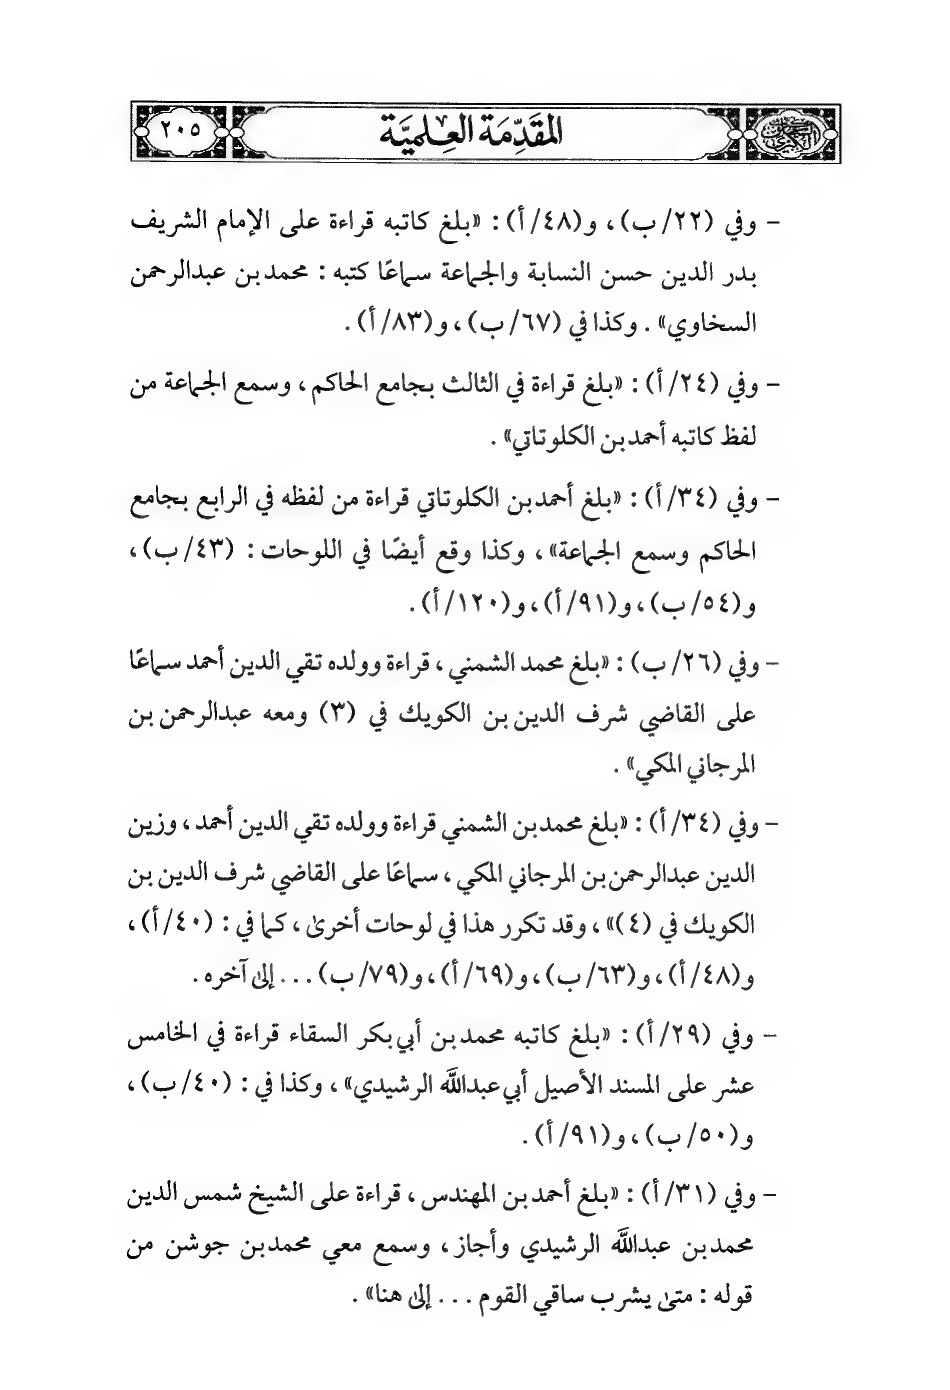 المقدمة العلمية
٢٠٥
- وفي (٢٢/ ب)، و(٤٨/ أ): «بلغ كاتبه قراءة على الإمام الشريف
بدر الدين حسن النسابة والجماعة سماعًا كتبه: محمد بن عبدالرحمن
السخاوي». وكذا في (٦٧/ ب)، و(٨٣/ أ).
- وفي (٢٤/ أ): «بلغ قراءة في الثالث بجامع الحاكم، وسمع الجماعة من
لفظ كاتبه أحمد بن الكلوتاتي».
- وفي (٣٤/ أ): «بلغ أحمد بن الكلوتاتي قراءة من لفظه في الرابع بجامع
الحاكم وسمع الجماعة»، وكذا وقع أيضًا في اللوحات: (٤٣/ ب)،
و(٥٤/ ب)، و(٩١/ أ)، و(١٢٠/ أ).
- وفي (٢٦/ ب): «بلغ محمد الشمني، قراءة وولده تقي الدين أحمد سماعًا
على القاضي شرف الدين بن الكويك في (٣) ومعه عبدالرحمن بن
المرجاني المكي».
- وفي (٣٤/ أ): «بلغ محمد بن الشمني قراءة وولده تقي الدين أحمد، وزين
الدين عبدالرحمن بن المرجاني المكي، سماعًا على القاضي شرف الدين بن
الكويك في (٤)»، وقد تكرر هذا في لوحات أخرىٰ، كما في: (٤٠/ أ)،
و(٤٨/ أ)، و(٦٣/ ب)، و(٦٩/ أ)، و(٧٩/ ب)... إلىٰ آخره.
- وفي (٢٩/ أ): «بلغ كاتبه محمد بن أبي بكر السقاء قراءة في الخامس
عشر على المسند الأصيل أبي عبدالله الرشيدي»، وكذا في: (٤٠/ ب)،
و(٥٠/ ب)، و(٩١/ أ).
- وفي (٣١/ أ): «بلغ أحمد بن المهندس، قراءة على الشيخ شمس الدين
محمد بن عبدالله الرشيدي وأجاز، وسمع معي محمد بن جوشن من
قوله: متىٰ يشرب ساقي القوم... إلىٰ هنا».